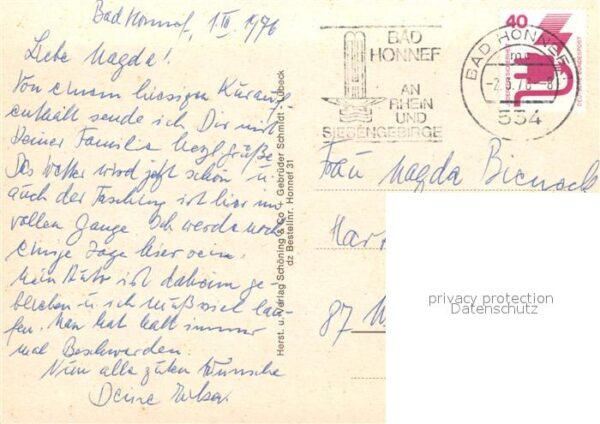 Bad Honnef, 1 III 1976
Liebe Magda!
Von einem hiesigen Kurauf
enthalt sende ich Dir mit
Deiner Familie herzl. Grüße
Das Wetter wird jetzt schön u
auch der Fasching ist hier im
vollen Gange. Ich werde noch
einige Tage hier sein.
Mein Auto ist daheim ge
blieben u. ich muß viel lau
fen. Man hat halt immer
mal Beschwerden.
Nun alle guten Wünsche
Deine
Herst. u. Verlag Schöning & Co + Gebrüder Schmidt · Lübeck
dz Bestellnr. Honnef 31
BAD
HONNEF
AN
RHEIN
UND
SIEBENGEBIRGE
BAD HONNEF
-2.3.76-8
534
40
DEUTSCHE BUNDESPOST
Frau Magda
87
privacy protection
Datenschutz